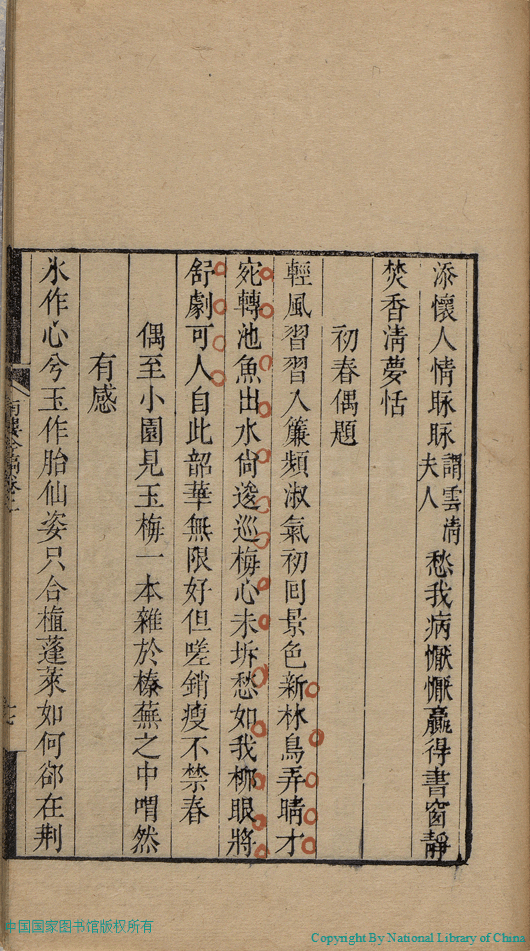 添懷人情脉脉謂雲淸夫人愁我病懨懨贏得書窗靜
焚香淸夢恬
初春偶題
輕風習習入簾頻淑氣初囘景色新林鳥弄晴才
宛轉池魚出水尙逡巡梅心未坼愁如我柳眼將
舒劇可人自此韶華無限好但嗟銷瘦不禁春
偶至小園見玉梅一本雜於榛蕪之中喟然
有感
氷作心兮玉作胎仙姿只合植蓬萊如何郤在荆
中国国家图书馆版权所有
Copyright By National Library of China